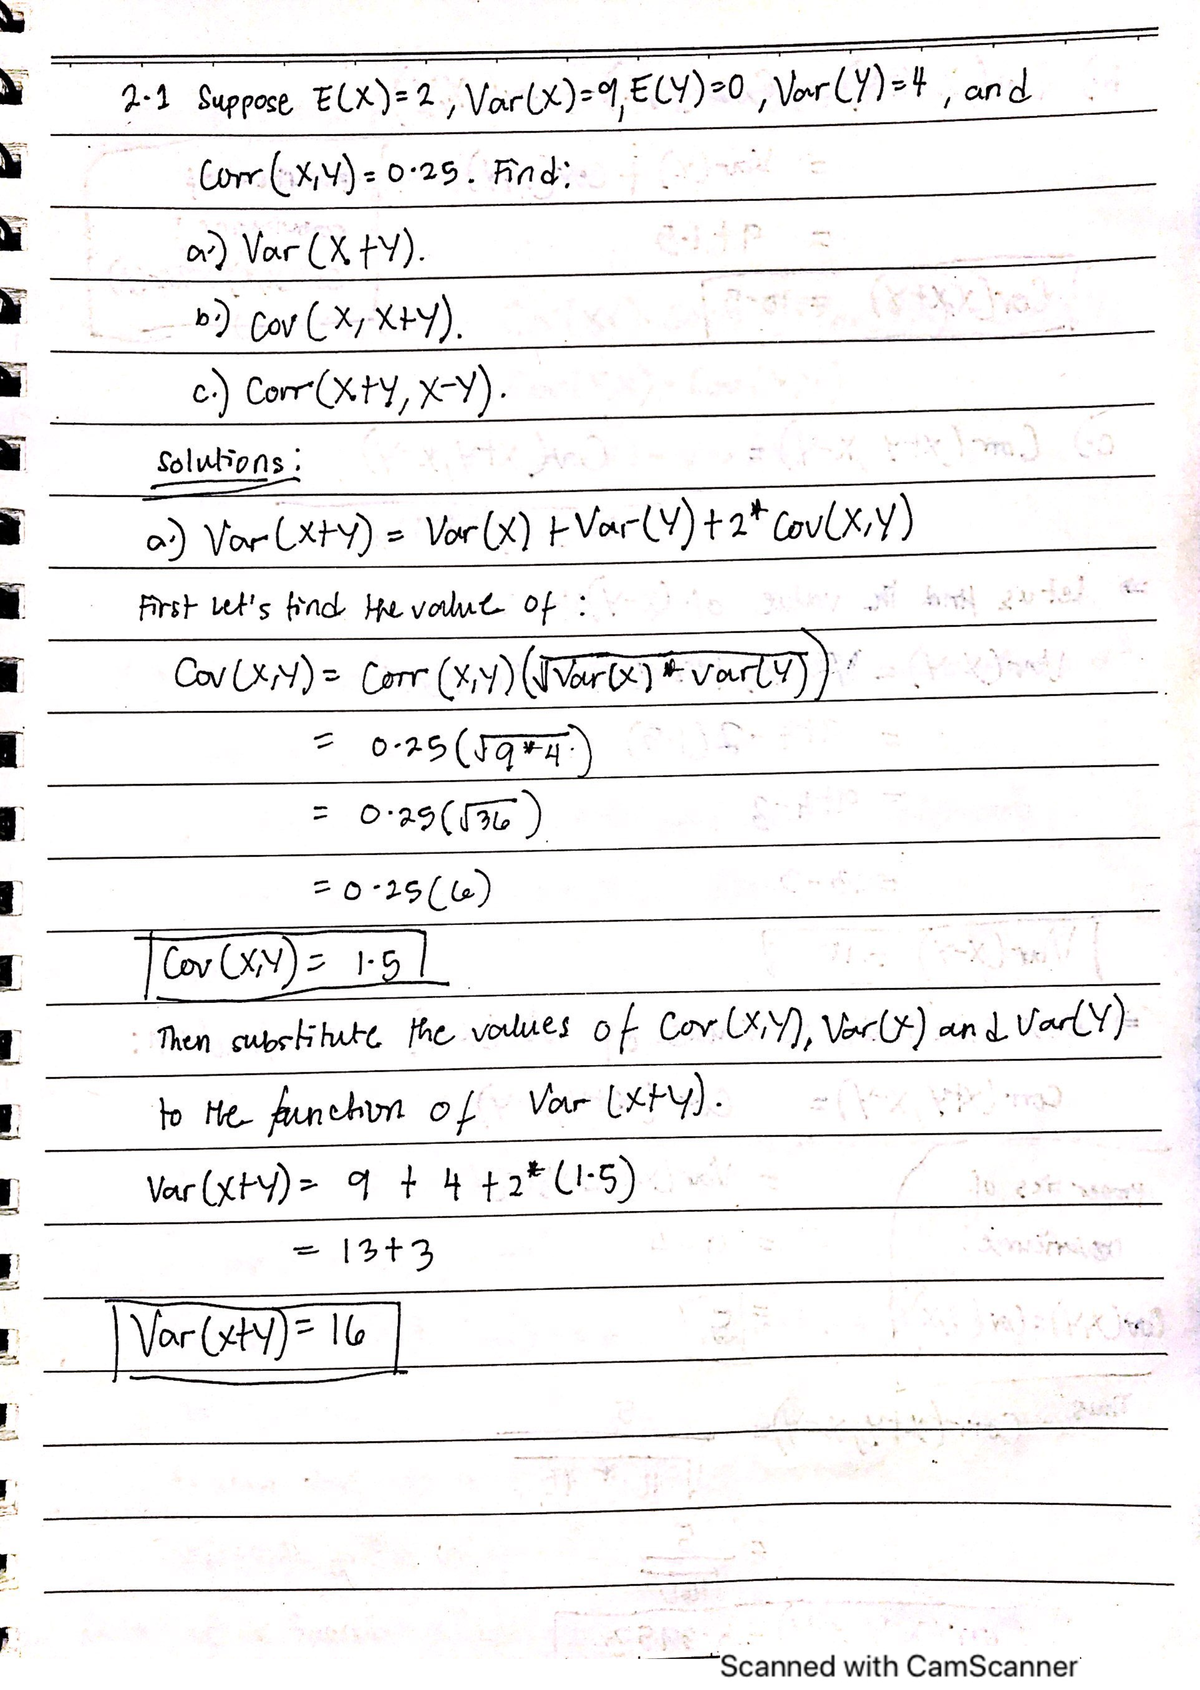 2.1 Suppose E(X)=2, Var(X)=9, E(Y)=0, Var(Y)=4, and
Corr(X,Y)=0.25. Find:
a.) Var(X+Y).
b.) Cov(X, X+Y).
c.) Corr(X+Y, X-Y).
Solutions:
a.) Var(X+Y) = Var(X) + Var(Y) + 2* Cov(X,Y)
First let's find the value of :
Cov(X,Y) = Corr(X,Y)(√Var(X) * Var(Y))
= 0.25(√9*4)
= 0.25(√36)
= 0.25(6)
Cov(X,Y) = 1.5
Then substitute the values of Cov(X,Y), Var(X) and Var(Y)
to the function of Var(X+Y).
Var(X+Y) = 9 + 4 + 2*(1.5)
= 13+3
Var(X+Y) = 16
Scanned with CamScanner